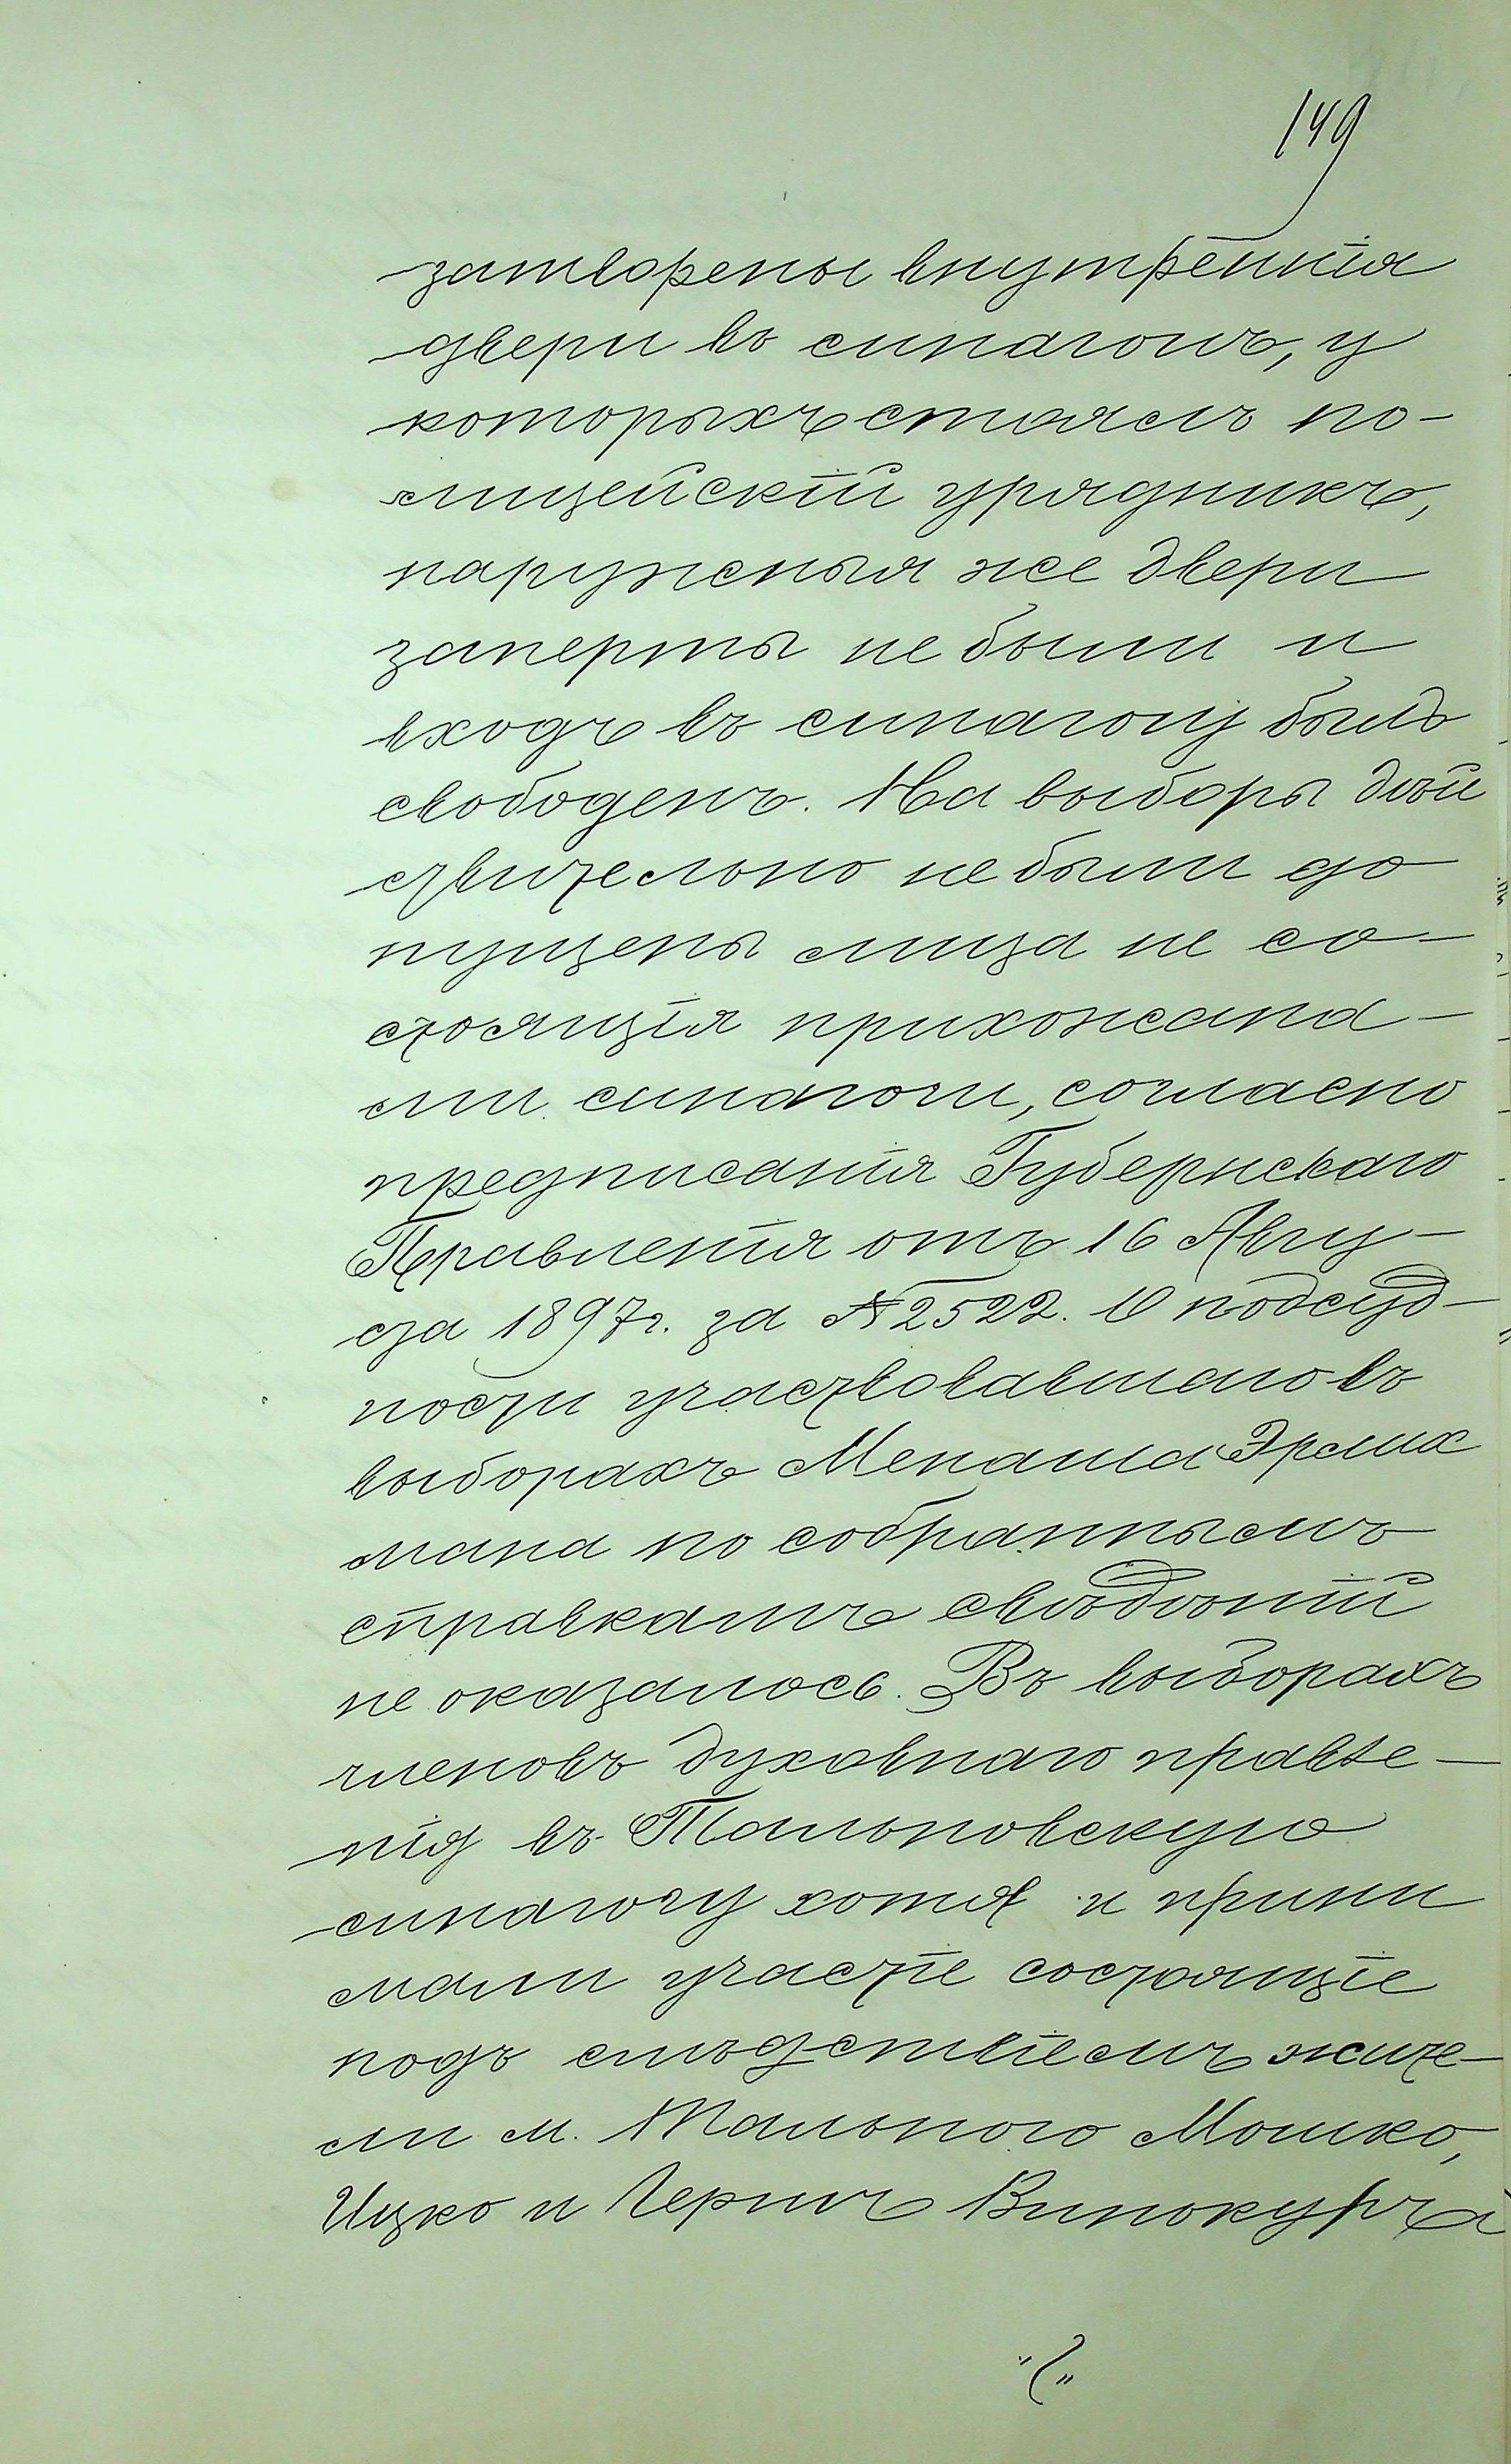 149
затворены внутреннія
двери въ синагогѣ, у
которыхъ стоялъ по-
лицейскій урядникъ,
наружныя же двери
заперты не были и
входъ въ синагогу былъ
свободенъ. На выборы дѣй
ствительно не были до
пущены лица не со-
стоящія прихожана-
ми синагоги, согласно
предписанія Губернскаго
Правленія отъ 16 Авгу-
ста 1897г. за №2522. О подсуд-
ности участвовавшаго въ
выборахъ Менаша Эрлих
мана по собраннымъ
справкамъ свѣдѣній
не оказалось. Въ выборахъ
членовъ духовнаго правле-
нія въ Тальновскую
синагогу хотя и прини
мали участіе состоящіе
подъ слѣдствіемъ жите-
ли м. Тального Мошко,
Ицко и Гершъ Винокуръ